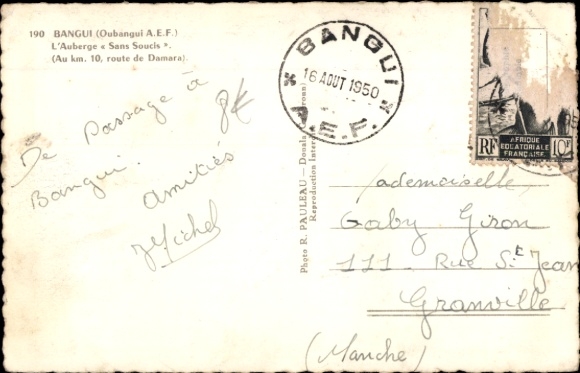 190 BANGUI (Oubangui A.E.F.)
L'Auberge « Sans Soucis ».
(Au km. 10, route de Damara).
BANGUI
16 AOUT 1950
A.E.F.
RF
AFRIQUE
EQUATORIALE
FRANÇAISE
10F
De passage à
Bangui.
8€
amitiés
Michel
Photo R. PAULEAU — Douala
Reproduction Inter
ademoiselle
Gaby Giron
111 - Rue St Jean
Granville
(Manche)